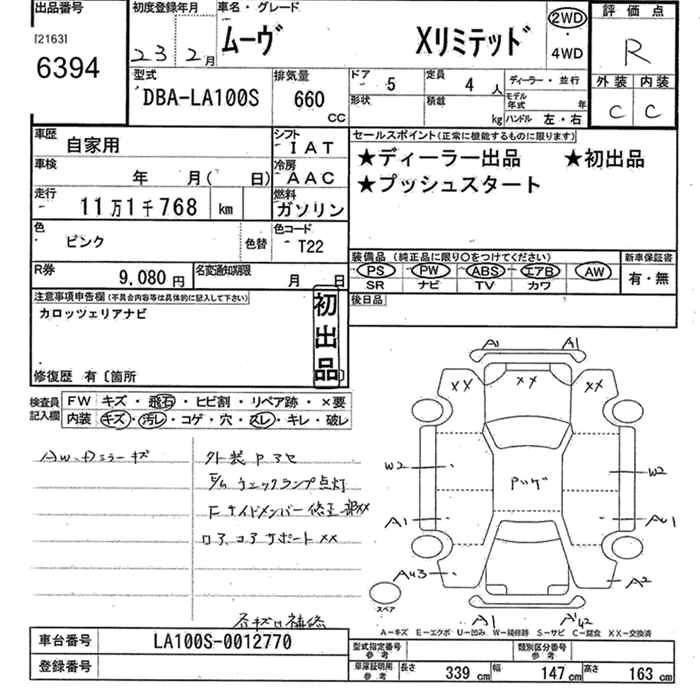 出品番号
[2163]
6394
初度登録年月
23 2月
車名・グレード
ムーヴ Xリミテッド
2WD
・
4WD
評価点
R
外装 内装
C C
型式
DBA-LA100S
排気量
660
CC
ドア 5
定員 4 人
形状
積載 kg
ディーラー・並行
モデル年式 年
ハンドル 左・右
車歴 自家用
シフト IAT
車検 年 月( 日)
冷房 AAC
走行 11万1千768 km
燃料 ガソリン
色 ピンク 色替
色コード T22
R券 9,080円
名変通知期限 月 日
セールスポイント(正常に機能するものに限ります)
★ディーラー出品 ★初出品
★プッシュスタート
装備品 (純正品に限り○をつけてください)
PS PW ABS エアB AW
SR ナビ TV カワ
新車保証書
有・無
後日品
注意事項申告欄(不具合内容等は具体的に記入して下さい)
カロッツェリアナビ
初出品
修復歴 有〔箇所 〕
検査員記入欄
FW キズ・飛石・ヒビ割・リペア跡・×要
内装 キズ・汚レ・コゲ・穴・スレ・キレ・破レ
AW、Dミラーキズ
外装PマセE/G チェックランプ点灯
F サイドメンバー修正
コアサポートXX
A1 A1
XX XX XX
W2 W2
A1
AU3 A2
A1
スペア
A-キズ E-エクボ U-凹み W-補修跡 S-サビ C-腐食 XX-交換済
車台番号 LA100S-0012770
登録番号
型式指定番号参考
類別区分番号参考
車庫証明用参考 長さ 339cm 幅 147cm 高さ 163cm